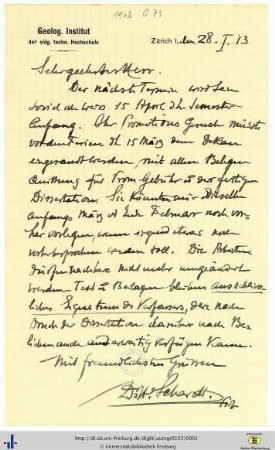 1908 G 73
Geolog. Institut
der eidg. techn. Hochschule
Zürich I, den 28. I. 13
Sehrgeehrter Herr.
Der nächste Termin wird sein
soviel ich weiss 15 April d. h. Semester
Anfang. Ihr Promotions Gesuch müsste
vor den Ferien dh 15 März dem Dekan
eingesandt werden, mit allen Belegen
Quittung für Prom Gebühr u der fertigen
Dissertation. Sie könnten mir dieselbe
anfangs März od Ende Februar noch vor-
her vorlegen, wenn irgend etwas noch
besprochen werden soll. Die Arbeiten
dürfen nachher nicht mehr umgeändert
werden. Text u Beilagen bleiben ausschliess-
liches Eigentum des Verfassers, der nach
Druck der Dissertation darüber nach Be-
lieben auch anderweitig verfügen kann.
Mit freundlichsten Grüssen
Dr H. Schardt.
http://dl.ub.uni-freiburg.de/diglit/autogr0183/0001
© Universitätsbibliothek Freiburg